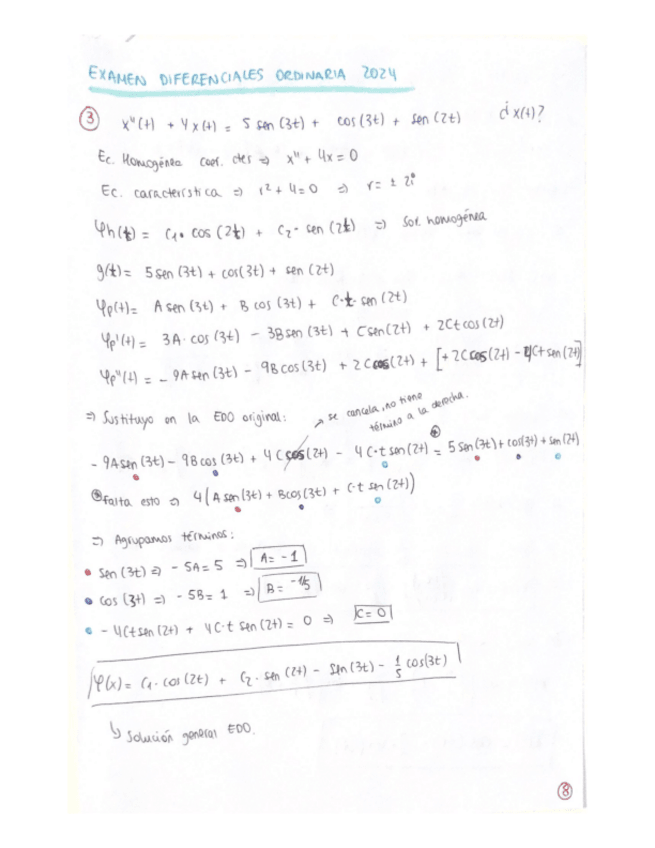 EXAMEN DIFERENCIALES ORDINARIA 2024
③ x''(t) + 4x(t) = 5 sen(3t) + cos(3t) + sen(2t) ¿x(t)?
Ec. Homogénea coef. ctes ⇒ x'' + 4x = 0
Ec. característica ⇒ r² + 4 = 0 ⇒ r = ± 2i
φh(t) = C₁· cos(2t) + C₂· sen(2t) ⇒ Sol. homogénea
g(t) = 5 sen(3t) + cos(3t) + sen(2t)
φp(t) = A sen(3t) + B cos(3t) + C·t· sen(2t)
φp'(t) = 3A· cos(3t) - 3B sen(3t) + C sen(2t) + 2Ct cos(2t)
φp''(t) = - 9A sen(3t) - 9B cos(3t) + 2C cos(2t) + [+ 2C cos(2t) - 4Ct sen(2t)]
⇒ Sustituyo en la EDO original: → se cancela, no tiene
término a la derecha.
- 9A sen(3t) - 9B cos(3t) + 4C cos(2t) - 4C·t sen(2t) = 5 sen(3t) + cos(3t) + sen(2t)
⊛ falta esto ⇒ 4(A sen(3t) + B cos(3t) + C·t sen(2t))
⇒ Agrupamos términos:
• sen(3t) ⇒ - 5A = 5 ⇒ A = -1
• cos(3t) ⇒ - 5B = 1 ⇒ B = -1/5
• - 4Ct sen(2t) + 4C·t sen(2t) = 0 ⇒ C = 0
φ(x) = C₁· cos(2t) + C₂· sen(2t) - sen(3t) - 1/5 cos(3t)
↳ Solución general EDO.
⑧